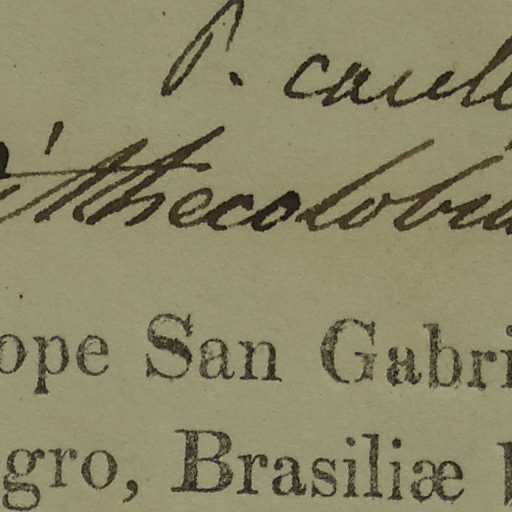 P. caul
ithecolobiu
ope San Gabri
gro, Brasiliæ